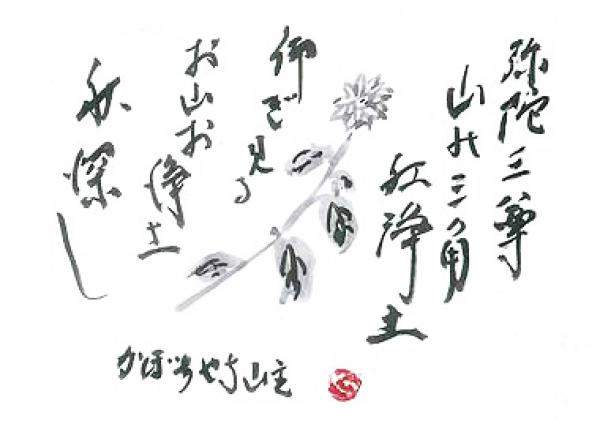 弥陀三尊
山 三角
浄土
仰ぎ見る
お山お
浄土
秋深し
かぼちや寺山主